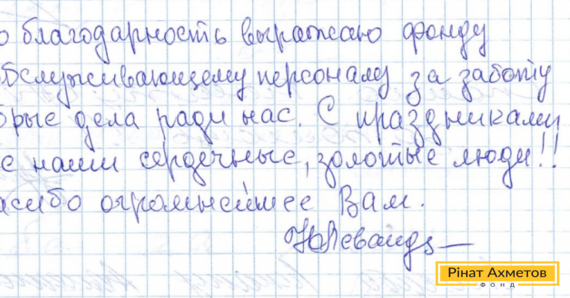 о благодарность выражаю фонду
обслуживающему персоналу за заботу
брые дела ради нас. С праздниками
е наши сердечные, золотые люди!!
асибо огромнейшее Вам.
Рінат Ахметов
ФОНД